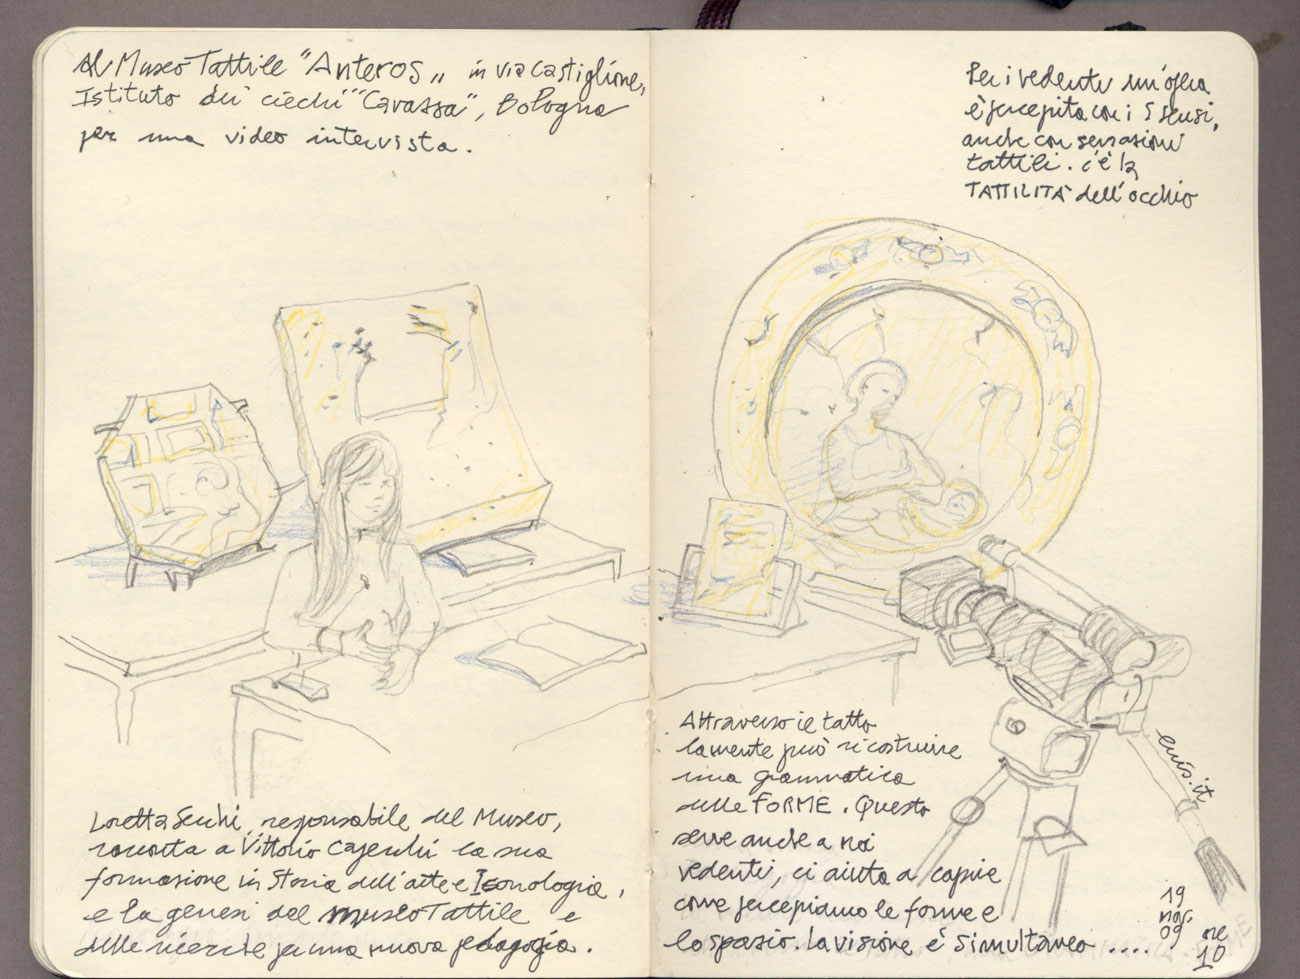 Al Museo Tattile "Anteros" in via Castiglione,
Istituto dei ciechi "Cavazza", Bologna
per una video intervista.
Loretta Secchi, responsabile del Museo,
racconta a Vittorio la sua
formazione in Storia dell'arte e Iconologia,
e la genesi del museo Tattile e
delle ricerche per una nuova pedagogia.
Per i vedenti un'opera
è percepita con i 5 sensi,
anche con sensazioni
tattili. c'è la
TATTILITÀ dell'occhio
Attraverso il tatto
la mente può ricostruire
una grammatica
delle FORME. Questo
serve anche a noi
vedenti, ci aiuta a capire
come percepiamo le forme e
lo spazio. La visione è simultanea ....
enis.it
19
nov.
09
ore
10